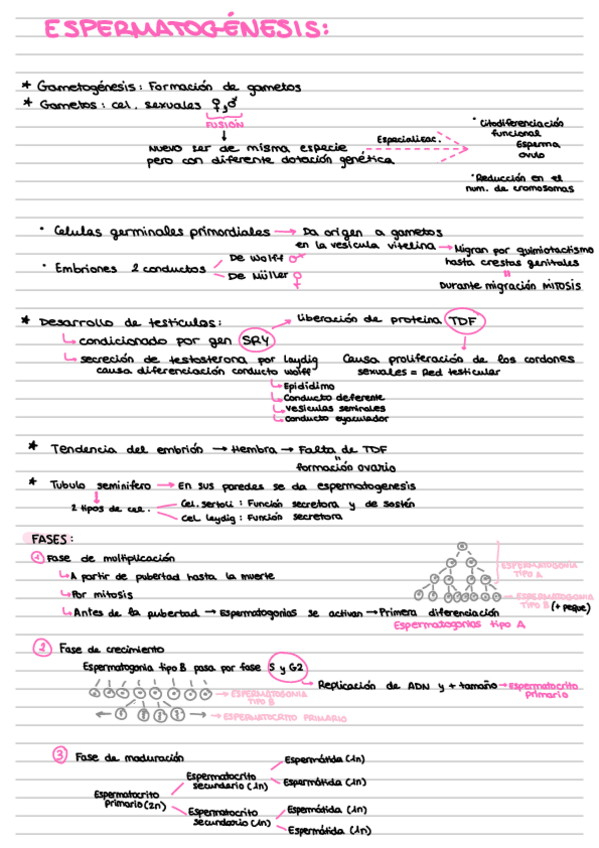 ESPERMATOGÉNESIS:
* Gametogénesis: Formación de gametos
* Gametos: cel. sexuales ♀,♂
FUSIÓN
Nuevo ser de misma especie
pero con diferente dotación genética
Especializac.
· Citodiferenciación
funcional
Esperma
ovulo
· Reducción en el
num. de cromosomas
· Celulas germinales primordiales → Da origen a gametos
en la vesícula vitelina → Migran por quimiotactismo
hasta crestas genitales
Durante migración MITOSIS
· Embriones 2 conductos
De Wolff ♂
De Müller ♀
* Desarrollo de testículos:
condicionado por gen SRY
liberación de proteina TDF
Causa proliferación de los cordones
sexuales = Red testicular
secreción de testosterona por leydig
causa diferenciación conducto wolff
Epidídimo
Conducto deferente
vesiculas seminales
conducto eyaculador
* Tendencia del embrión → Hembra → Falta de TDF
formación ovario
* Tubulo seminifero → En sus paredes se da espermatogenesis
2 tipos de cel.
Cel. sertoli: Función secretora y de sostén
Cel leydig: Función secretora
FASES:
1 Fase de moltiplicación
A partir de pubertad hasta la muerte
Por mitosis
Antes de la pubertad → Espermatogonias se activan → Primera diferenciación
Espermatogonias tipo A
ESPERMATOGONIA
TIPO A
ESPERMATOGONIA
TIPO B (+ peque)
2 Fase de crecimiento
Espermatogonia tipo B pasa por fase S y G2
Replicación de ADN y + tamaño → Espermatocrito
primario
ESPERMATOGONIA
TIPO B
ESPERMATOCRITO PRIMARIO
3 Fase de maduración
Espermatocrito
primario (2n)
Espermatocrito
secundario (1n)
Espermátida (1n)
Espermátida (1n)
Espermatocrito
secundario (1n)
Espermátida (1n)
Espermátida (1n)